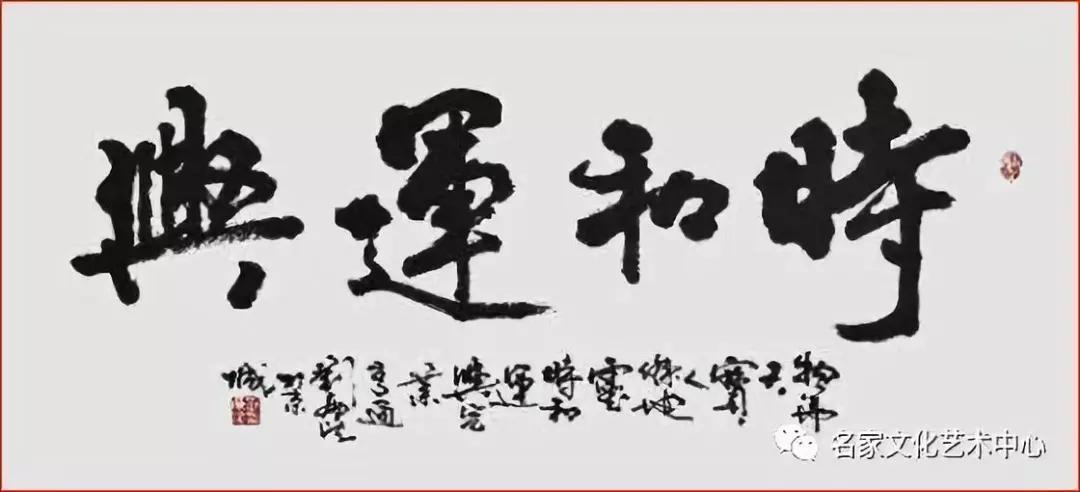 時和運興
物華
天
寶人
傑地
靈
時和
運
興百
業
亨通
劉
於京
城
名家文化艺术中心